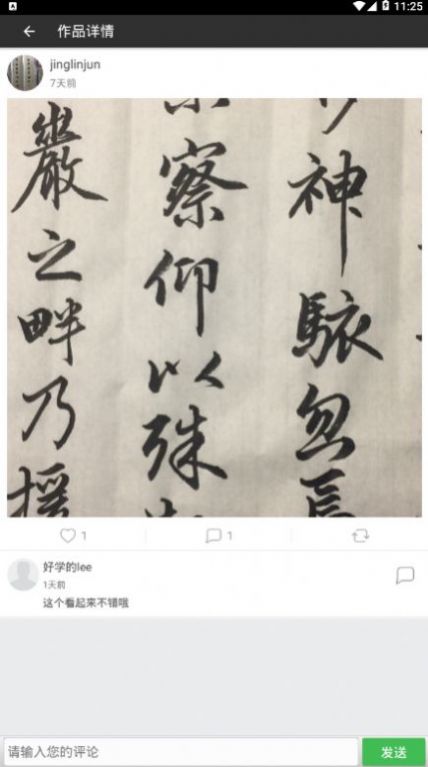 11:25
作品详情
jinglinjun
7天前
神駭忽
察仰以殊
巖之畔乃
1
1
好学的lee
1天前
这个看起来不错哦
请输入您的评论
发送